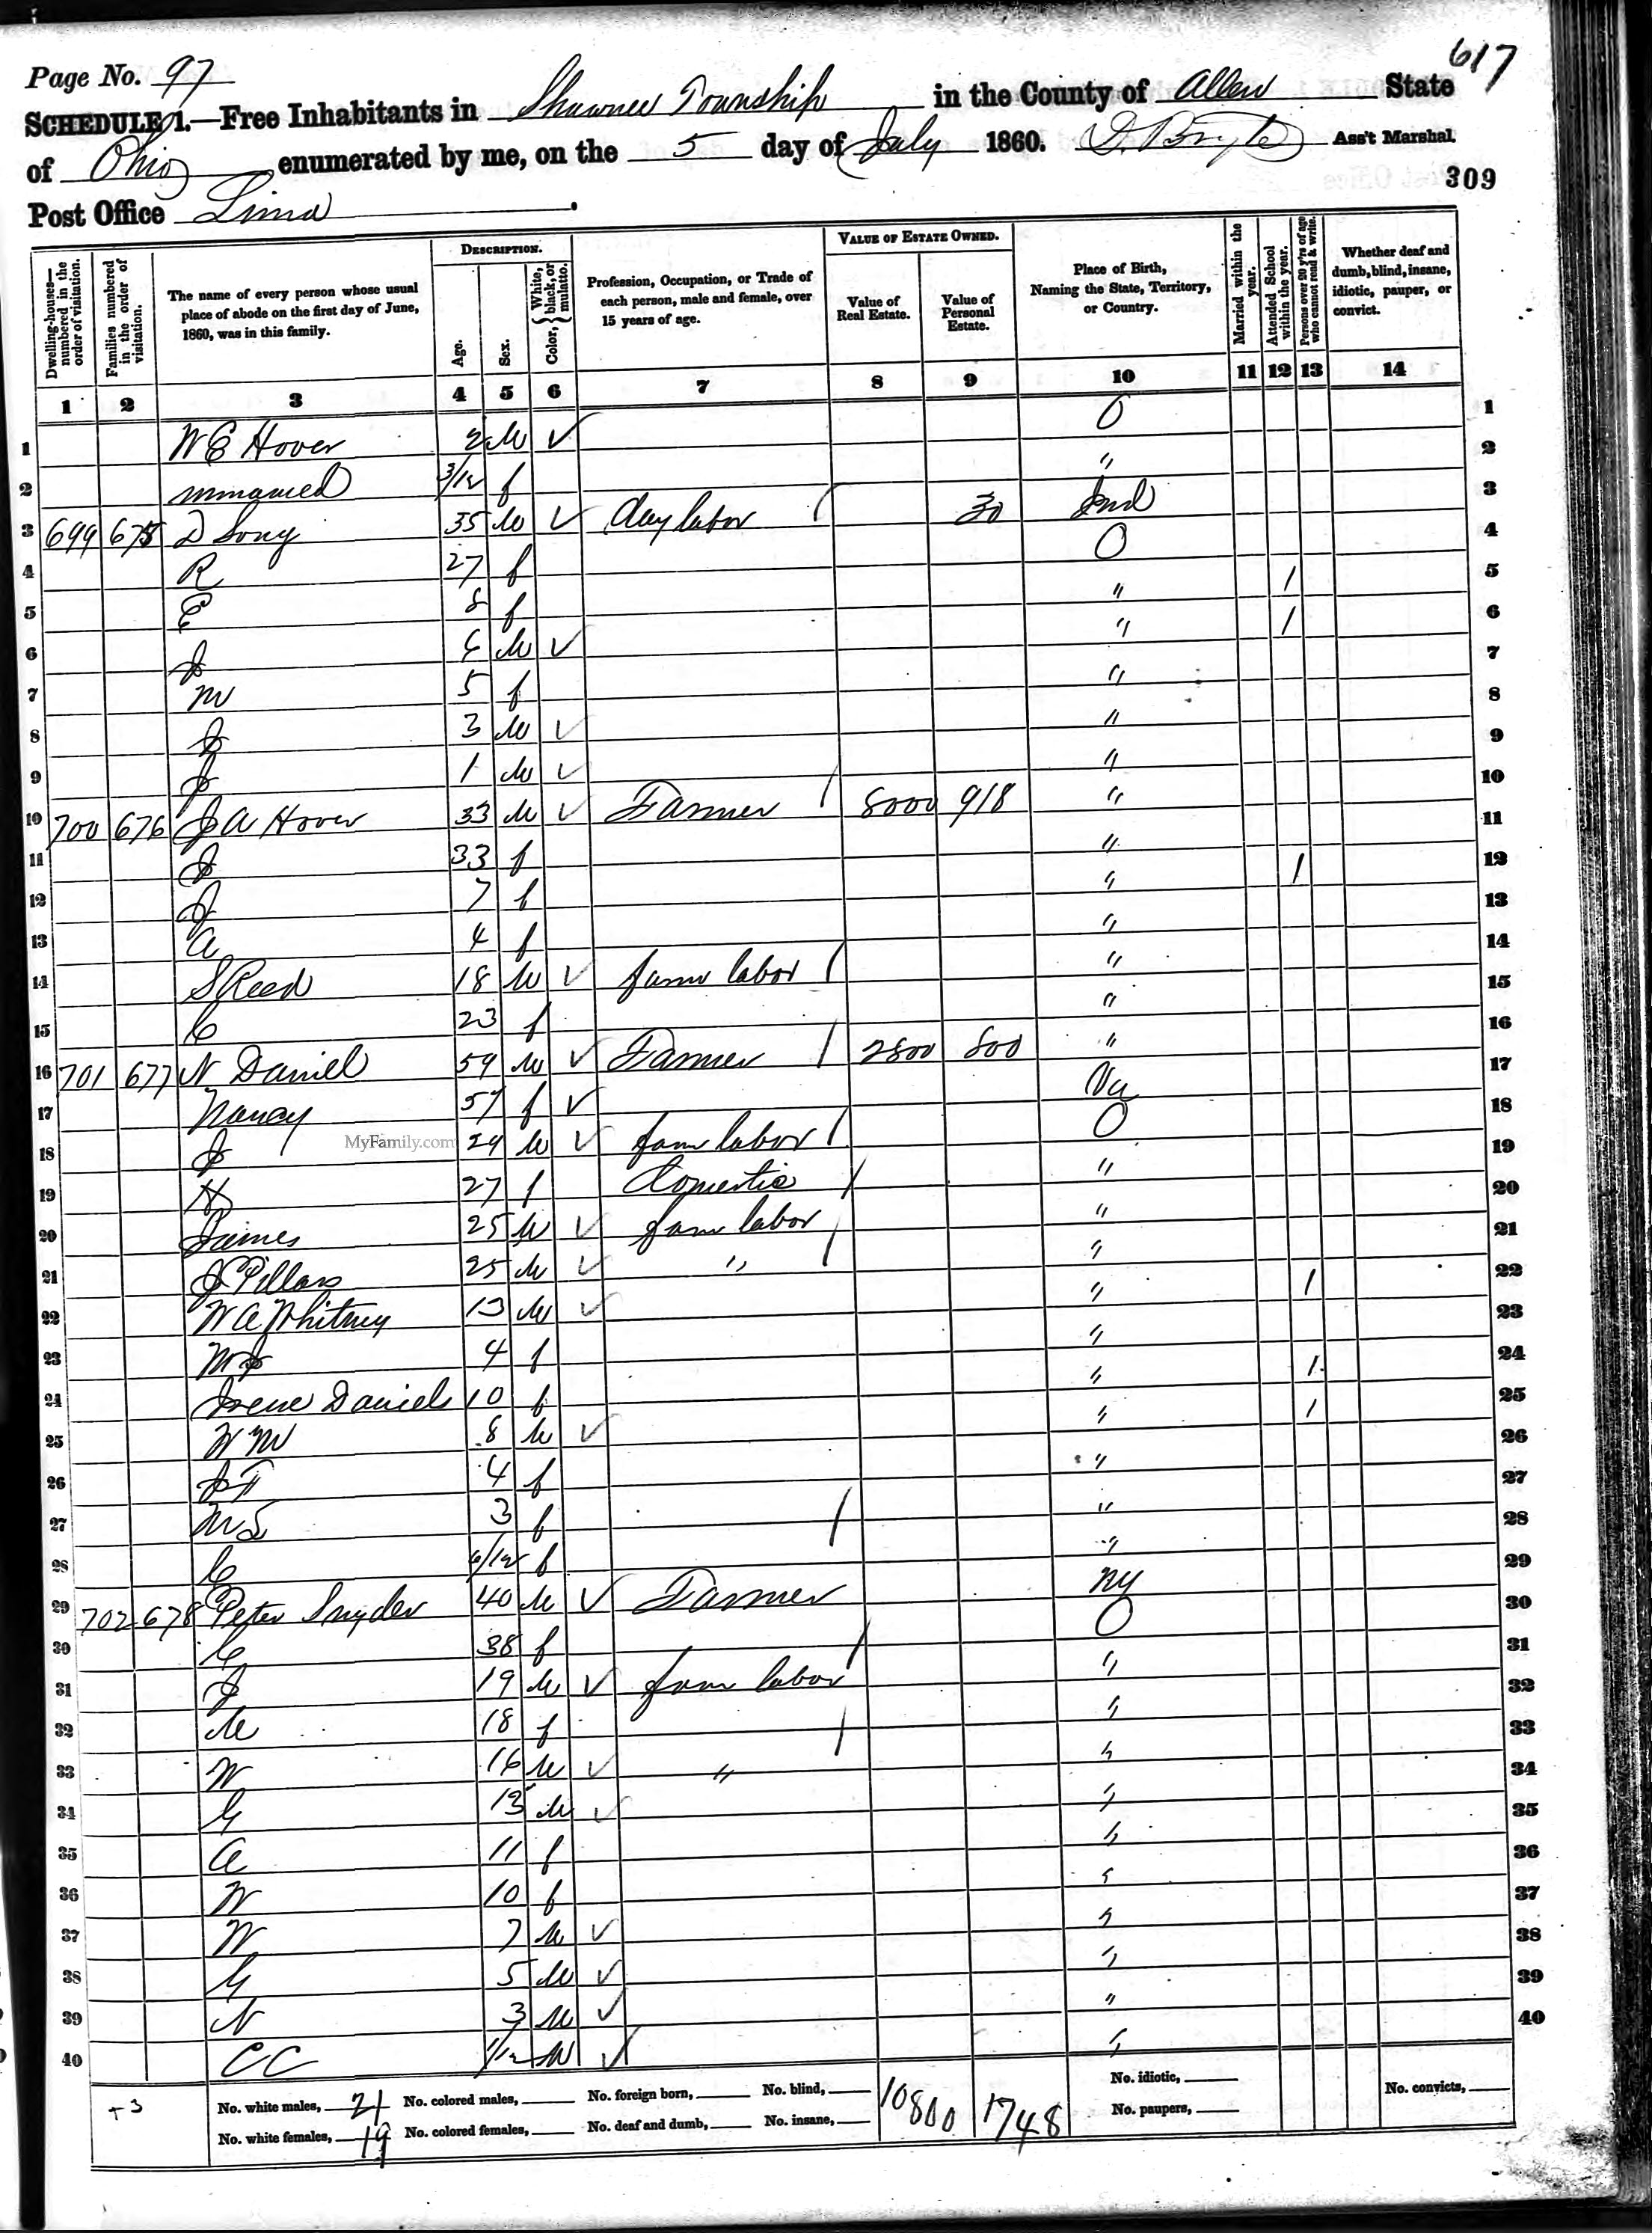 617
Page No. 97
SCHEDULE 1.—Free Inhabitants in Shawnee Township in the County of Allen State
of Ohio enumerated by me, on the 5 day of July 1860. Ass't Marshal.
309
Post Office Lima.
DESCRIPTION. VALUE OF ESTATE OWNED.
Dwelling-houses—numbered in the order of visitation. Families numbered in the order of visitation. The name of every person whose usual place of abode on the first day of June, 1860, was in this family. Age. Sex. Color, { White, black, or mulatto. Profession, Occupation, or Trade of each person, male and female, over 15 years of age. Value of Real Estate. Value of Personal Estate. Place of Birth, Naming the State, Territory, or Country. Married within the year. Attended School within the year. Persons over 20 y'rs of age who cannot read & write. Whether deaf and dumb, blind, insane, idiotic, pauper, or convict.
1 2 3 4 5 6 7 8 9 10 11 12 13 14
1 W E Hover 2 M ✓ O 1
2 unnamed 3/12 f " 2
3 699 675 D Long 35 M ✓ day labor / 30 Ind 3
4 R 27 f O 4
5 E 8 f " / 5
6 J 6 M ✓ " / 6
7 M 5 f " 7
8 J 3 M ✓ " 8
9 J 1 M ✓ " 9
10 700 676 J A Hover 33 M ✓ Farmer / 8000 918 " 10
11 J 33 f " 11
12 J 7 f " / 12
13 A 4 f " 13
14 S Reed 18 M ✓ farm labor / " 14
15 C 23 f " 15
16 701 677 N Daniel 59 M ✓ Farmer / 2800 800 " 16
17 Nancy 57 f ✓ Va 17
18 J MyFamily.com 29 M ✓ farm labor / O 18
19 27 f Domestic / " 19
20 James 25 M ✓ farm labor " 20
21 J Pillars 25 M ✓ " / " 21
22 W A Whitney 13 M ✓ " / 22
23 M J 4 f " 23
24 Irene Daniels 10 f " / 24
25 W M 8 M ✓ " / 25
26 J F 4 f " 26
27 M S 3 f / " 27
28 C 6/12 f " 28
29 702 678 Peter Snyder 40 M ✓ Farmer NY 29
30 C 38 f / O 30
31 J 19 M ✓ farm labor " 31
32 M 18 f / " 32
33 W 16 M ✓ " " 33
34 G 13 M ✓ " 34
35 A 11 f " 35
36 W 10 f " 36
37 W 7 M ✓ " 37
38 G 5 M ✓ " 38
39 N 3 M ✓ " 39
40 C C 1/12 M ✓ " 40
+3 No. white males, 21 No. colored males, No. foreign born, No. blind, 10800 1748 No. idiotic, No. convicts,
No. white females, 19 No. colored females, No. deaf and dumb, No. insane, No. paupers,